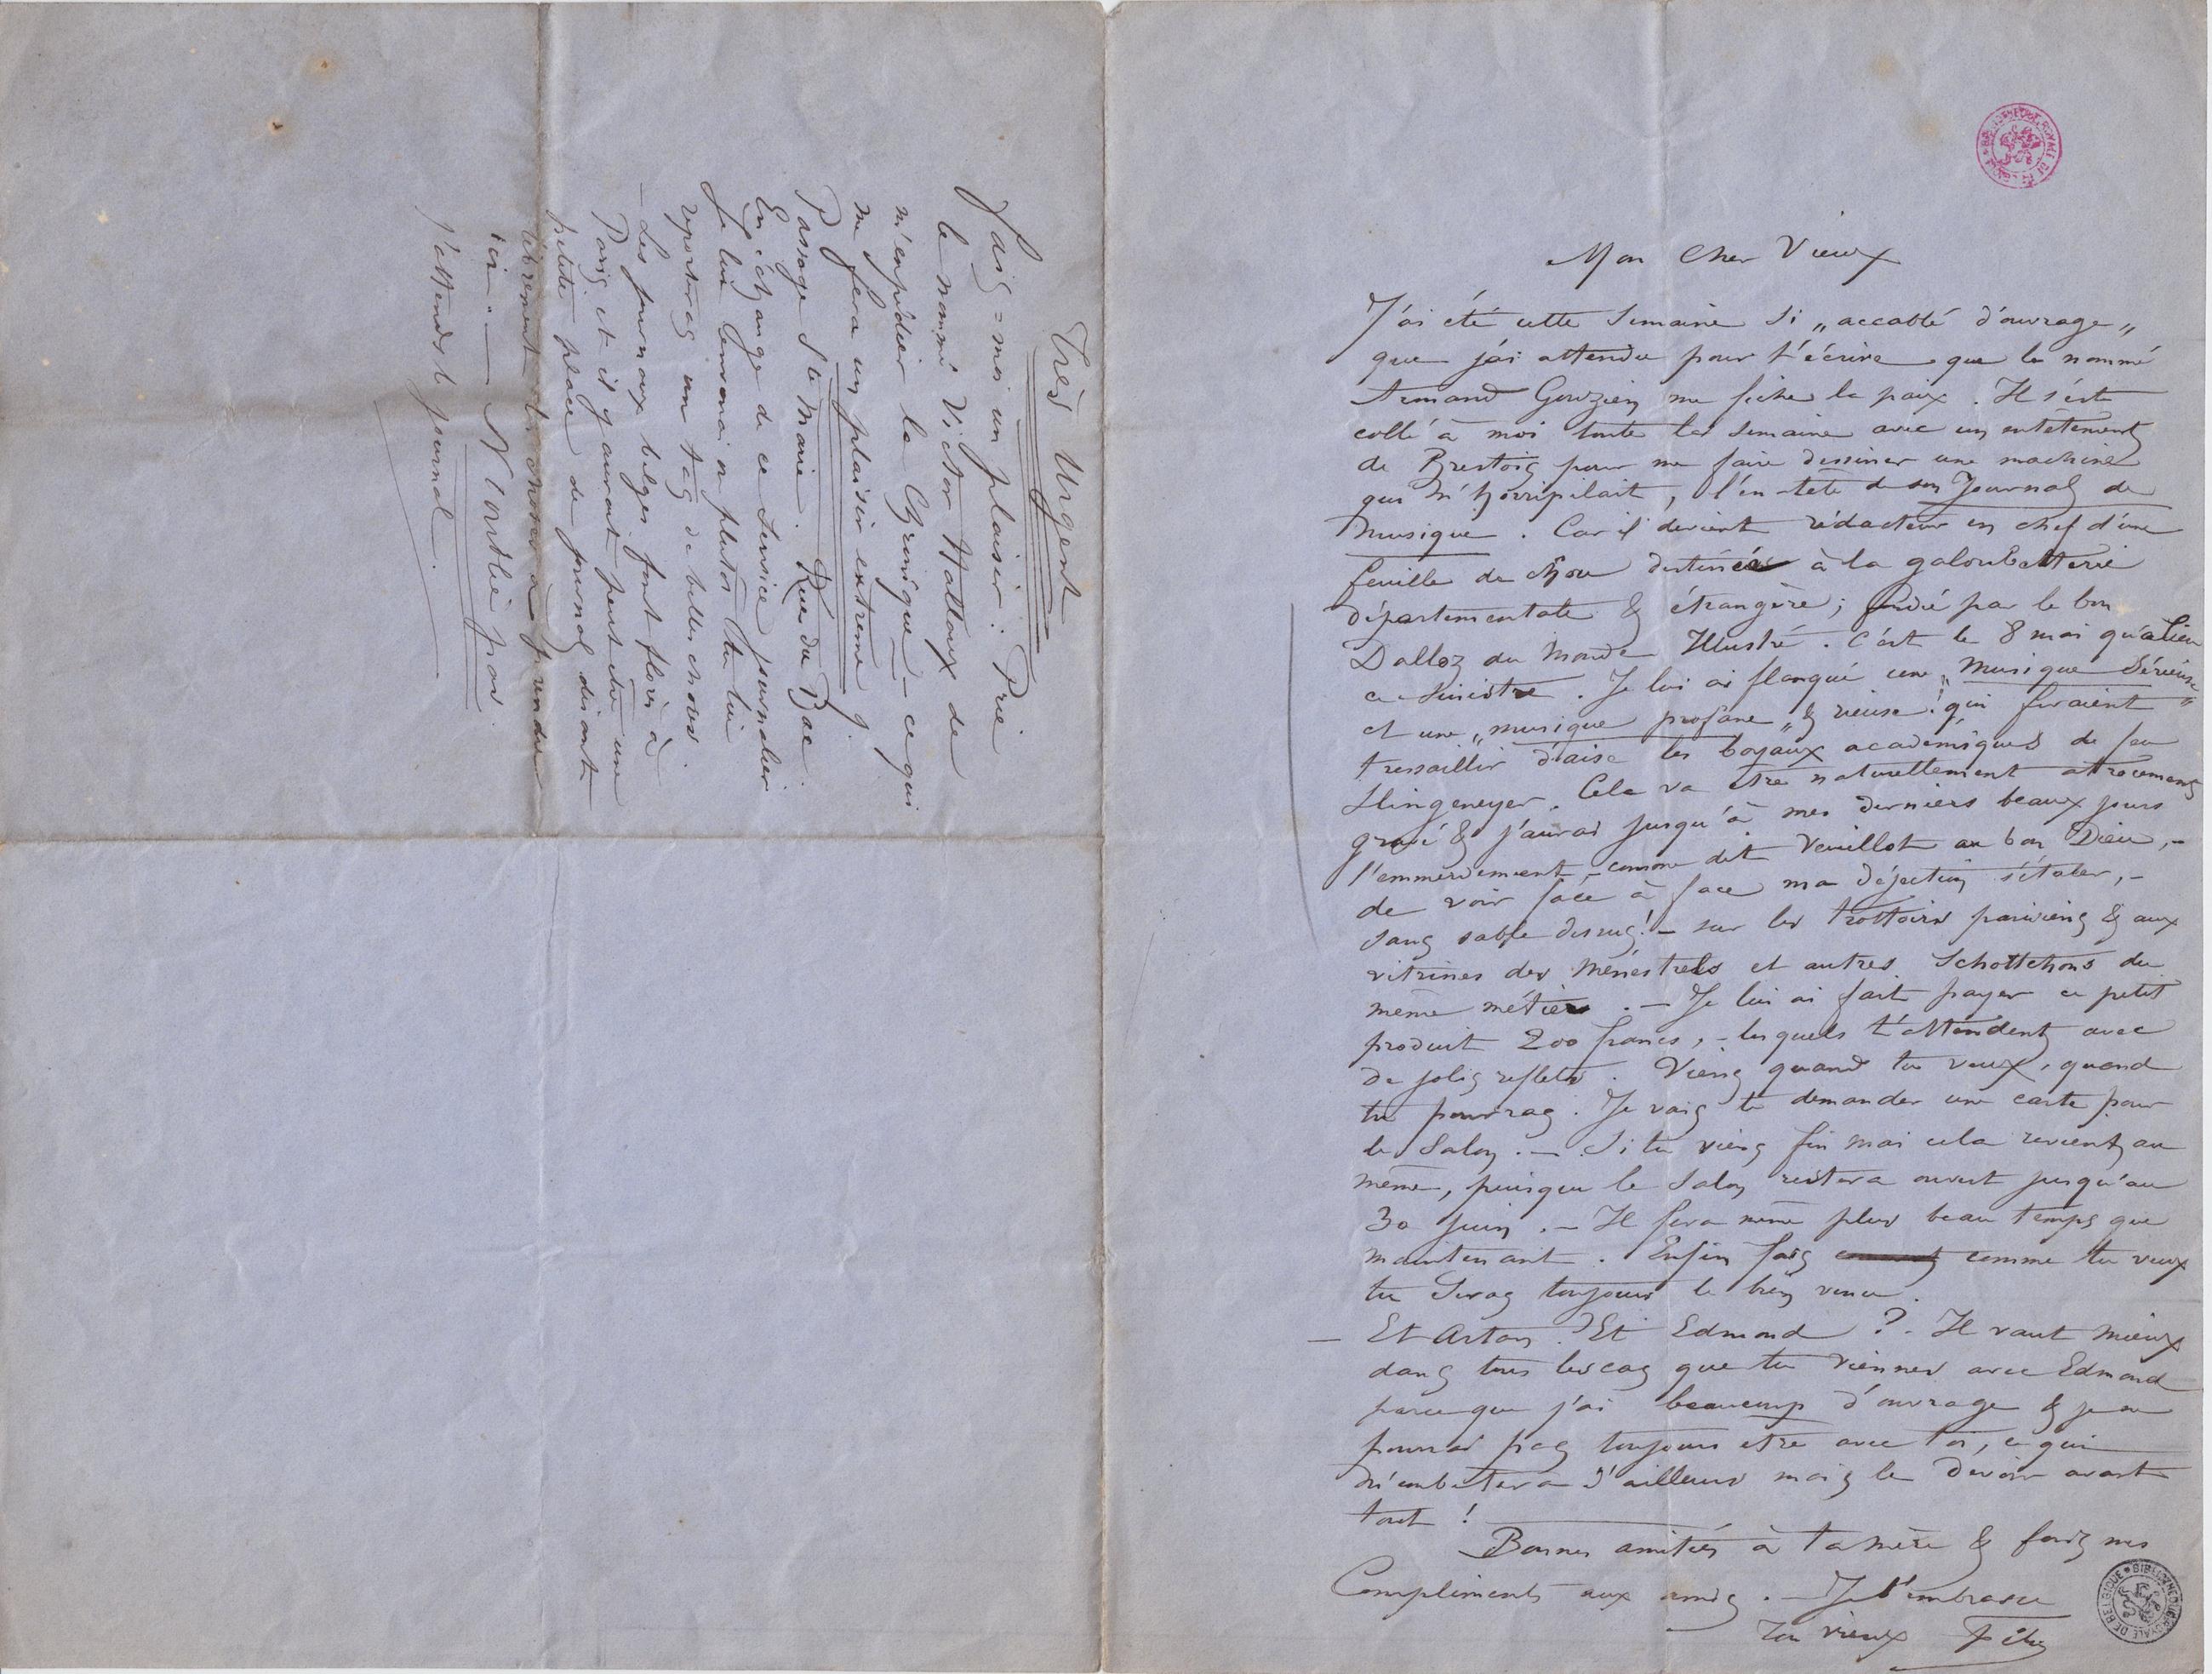 Mon Cher Vieux
J'ai été cette Semaine si „accablé d'ouvrage„
que j'ai attendu pour t'écrire que le nommé
Armand Gouzien me fiche la paix. Il s'est
collé à moi toute la semaine avec un entêtement
de Brestois pour me faire dessiner une machine
qui m'horripilait, l'en-tête de son Journal de
Musique. Car il devient rédacteur en chef d'une
feuille de chou destinée à la galoubetterie
départementale & étrangère; fondé par le bon
Dalloz du Monde Illustré. C'est le 8 mai qu'a lieu
ce sinistre. Je lui ai flanqué une „Musique Sérieuse„
et une „musique profane„ & rieuse! qui feraient
tressaillir d'aise les boyaux académiques de feu
Slingeneyer. Cela va être naturellement atrocement
gravé & j'aurai jusqu'à mes derniers beaux jours
l'emmerdement, – comme dit Veuillot au bon Dieu, –
de voir face à face ma déjection s'étaler, –
sans sable dessus! – sur les trottoirs parisiens & aux
vitrines des Ménestrels et autres Schottchons du
même métier. – Je lui ai fait payer ce petit
produit 200 francs, – lesquels t'attendent avec
de jolis reflets. Viens quand tu veux, quand
tu pourras. Je vais te demander une carte pour
le Salon. – Si tu viens fin mai cela revient au
même, puisque le Salon restera ouvert jusqu'au
30 juin. – Il fera même plus beau temps que
maintenant. Enfin fais comme tu veux
tu seras toujours le bien venu.
– Et Artan? Et Edmond? Il vaut mieux
dans tous les cas que tu viennes avec Edmond
parce que j'ai beaucoup d'ouvrage & je ne
pourrai pas toujours être avec toi, ce qui
m'embêtera d'ailleurs mais le devoir avant
tout!
Bonnes amitiés à ta mère & fais mes
Compliments aux amis. – Je t'embrasse
Ton vieux Fély
Très Urgent
Fais-moi un plaisir: Prie
le nommé Victor Hallaux de
m'expédier la Chronique – ce qui
me fera un plaisir extrême
Passage Ste Marie. Rue du Bac.
En échange de ce service journalier
Je lui enverrai ou plutôt tu lui
reporteras un tas de belles choses.
– Les journaux belges font florès à
Paris et il y aurait peut être une
petite place de journal disant
librement les choses à prendre
ici. — N'oublie pas.
J'attends le journal.
BIBLIOTHEQUE ROYALE DE BELGIQUE
BIBLIOTHEQUE ROYALE DE BELGIQUE